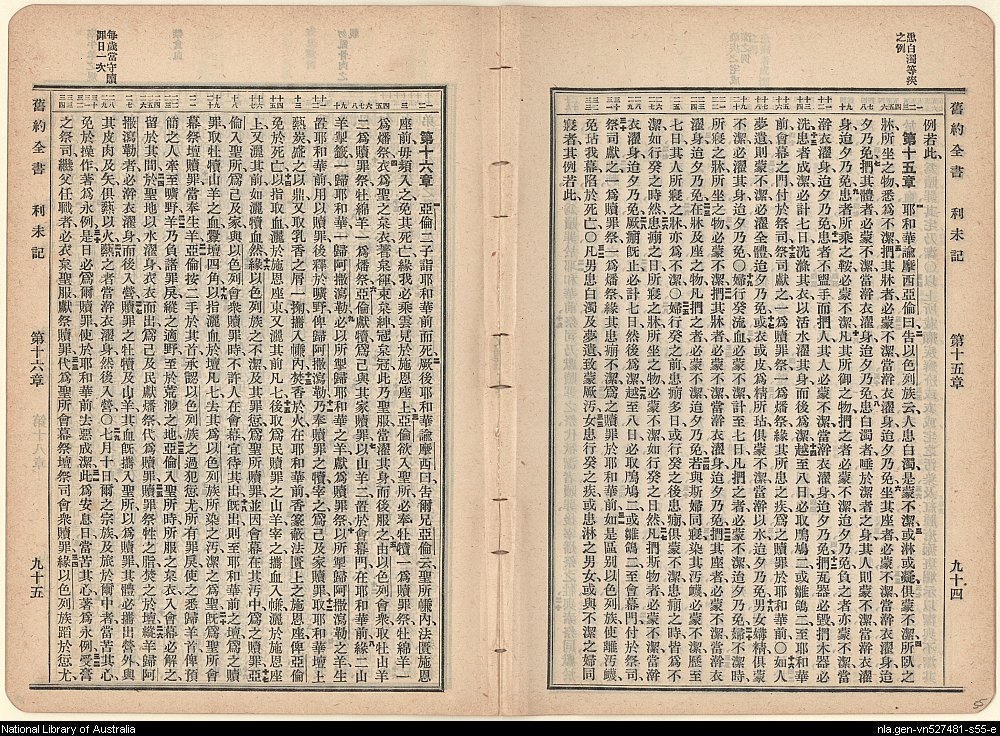 患白濁等疾
之例
舊約全書 利未記 第十五章 九十四
例若此
第十五章 耶和華諭摩西亞倫曰告以色列族云人患白濁是蒙不潔或淋或凝俱蒙不潔所臥之
牀所坐之物悉爲不潔捫其牀者必蒙不潔當澣衣濯身迨夕乃免坐其座者必蒙不潔當澣衣濯身迨
夕乃免捫其體者必蒙不潔當澣衣濯身迨夕乃免患白濁者唾於潔者之身其人則蒙不潔當澣衣濯
身迨夕乃免患者所乘之鞍必蒙不潔凡其所御之物捫之者必蒙不潔迨夕乃免負之者亦蒙不潔當
澣衣濯身迨夕乃免患者不盥手而捫人其人必蒙不潔當澣衣濯身迨夕乃免捫瓦器必毀捫木器必
洗患者成潔必計七日洗滌其衣以活水濯其身而後爲潔越至八日必取鳲鳩二或雛鴿二至耶和華
前會幕之門付於祭司獻之一爲贖罪祭一爲燔祭緣其所患於耶和華前爲之贖罪乃可免〇如人
夢遺則蒙不潔必濯全體迨夕乃免或衣或皮爲精所玷俱蒙不潔當澣以水迨夕乃免男女媾精俱蒙
不潔必濯其身迨夕乃免〇婦行癸流血必蒙不潔計至七日凡捫之者必蒙不潔迨夕乃免婦不潔時
所寢之牀所坐之物必蒙不潔捫其牀者必蒙不潔當澣衣濯身迨夕乃免捫其座者必蒙不潔當澣衣
濯身迨夕乃免在牀及座之物凡捫之者必蒙不潔迨夕乃免若與斯婦同寢染其汚衊必蒙不潔歷至
七日其人所寢之牀亦爲不潔〇婦行癸之前患痈多日或行癸之後患痈俱蒙不潔患痈之時皆爲不
潔如行癸之時然患痈之日所寢之牀所坐之物必蒙不潔如行癸之日然凡捫斯物者必蒙不潔當澣
衣濯身迨夕乃免厥痈旣止必計七日然後爲潔越至八日必取鳲鳩二或雛鴿二至會幕門付於祭司
祭司獻之一爲贖罪祭一爲燔祭緣其患汚於耶和華前爲之贖罪於耶和華前如是區別以色列族使離汚衊
免玷我幕陷於死亡〇凡男患白濁及夢遺致蒙厥汚女患行癸之疾或患淋之男女或與不潔之婦同
寢者其例若此
每歲當守贖
罪日一次
第十六章 亞倫二子詣耶和華前而死厥後耶和華諭摩西曰告爾兄亞倫云聖所㡘內法匱施恩
座前毋頻入之免其死亡緣我必乘雲見於施恩座上亞倫欲入聖所必奉牡犢一爲贖罪祭牡綿羊一
爲燔祭衣爲聖之枲衣著枲褌束枲紳冠枲冠此乃聖服當濯其身而後服之由以色列會衆取牡山羊
二爲贖罪祭牡綿羊一爲燔祭亞倫獻犢爲己與其家贖罪以山羊二置於會幕門在耶和華前緣二山
羊掣籤一歸耶和華一歸阿撒瀉勒必以所掣歸耶和華之羊獻爲贖罪祭以所掣歸阿撒瀉勒之羊生
置耶和華前用以贖罪後釋於曠野俾歸阿撒瀉勒乃奉贖罪之犢宰之爲己及家贖罪取耶和華壇上
爇炭盛之以鼎又取乳香之屑一掬攜入㡘內焚香於火在耶和華前香篆蔽法匱上之施恩座俾亞倫
免於死亡以指取血灑於施恩座東又灑其前凡七後取爲民贖罪之山羊宰之攜血入㡘灑於施恩座
上又灑其前如灑犢血然緣以色列族之不潔及其罪愆爲聖所贖罪並因會幕在其汚中爲之贖罪亞
倫入聖所爲己及家與以色列會衆贖罪時不許人在會幕宜待其出旣出則至耶和華前之壇爲之贖
罪取牡犢山羊之血釁壇四角以指灑血於壇凡七去其爲以色列族所染之汚潔之爲聖旣爲聖所會
幕祭壇贖罪當奉生羊亞倫按二手於其首承認以色列族之過犯愆尤所有罪戾使之悉歸羊首俾預
簡之人牽至曠野羊乃負諸罪戾縱之適野至於荒渺之地亞倫入聖所時所服之枲衣入會幕必解之
留於其間於聖地以水濯身衣衣而出爲己及民獻燔祭代爲贖罪贖罪祭牲之脂焚之於壇縱羊歸阿
撒瀉勒者必澣衣濯身而後入營贖罪之牡犢及山羊其血旣攜入聖所以爲贖罪其體必攜出營外與
其皮肉及矢俱爇以火爇之者當澣衣濯身然後入營〇七月十日爾之宗族及旅於爾中者當苦其心
免於操作著爲永例是日必爲爾贖罪使於耶和華前去惡成潔此爲安息日當苦其心著爲永例受膏
之祭司繼父任職者必衣枲聖服獻祭贖罪代爲聖所會幕祭壇祭司會衆贖罪緣以色列族蹈於愆尤
舊約全書 利未記 第十六章 九十五
National Library of Australia
nla.gen-vn527481-s55-e